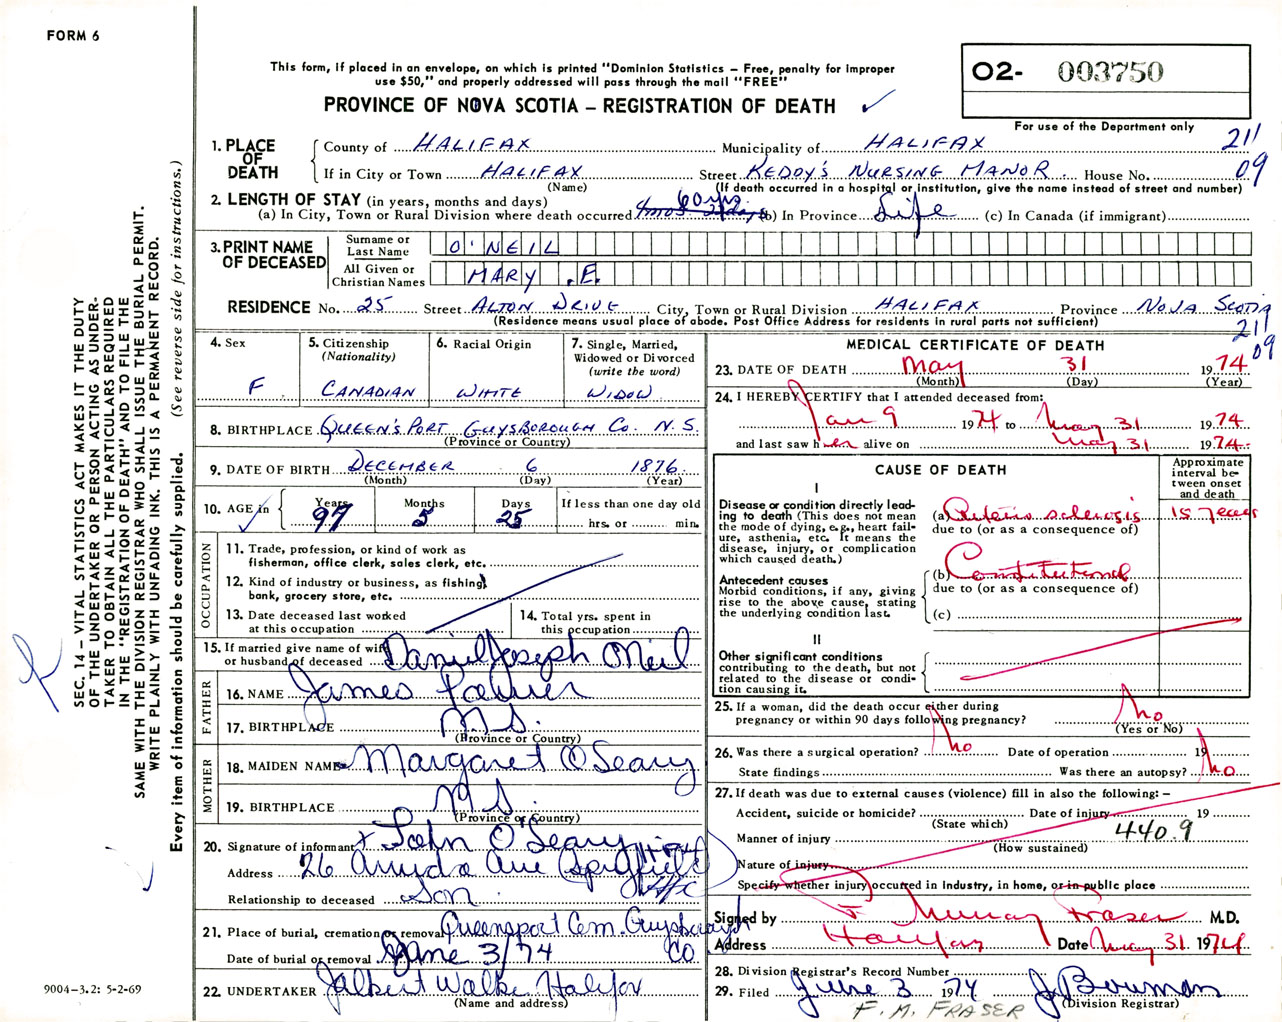 FORM 6
This form, if placed in an envelope, on which is printed "Dominion Statistics – Free, penalty for improper
use $50," and properly addressed will pass through the mail "FREE"
PROVINCE OF NOVA SCOTIA – REGISTRATION OF DEATH
O2- 003750
For use of the Department only
211
09
1. PLACE OF DEATH
County of HALIFAX Municipality of HALIFAX
If in City or Town HALIFAX Street KEDDY'S NURSING MANOR House No.
(Name) (If death occurred in a hospital or institution, give the name instead of street and number)
2. LENGTH OF STAY (in years, months and days)
(a) In City, Town or Rural Division where death occurred 60 yrs (b) In Province Life (c) In Canada (if immigrant)
3. PRINT NAME OF DECEASED
Surname or Last Name O'NEIL
All Given or Christian Names MARY .E.
RESIDENCE No. 25 Street ALTON DRIVE City, Town or Rural Division HALIFAX Province NOVA SCOTIA
(Residence means usual place of abode. Post Office Address for residents in rural parts not sufficient)
211
09
4. Sex F
5. Citizenship (Nationality) CANADIAN
6. Racial Origin WHITE
7. Single, Married, Widowed or Divorced (write the word) WIDOW
8. BIRTHPLACE QUEEN'S PORT GUYSBOROUGH CO. N.S.
(Province or Country)
9. DATE OF BIRTH DECEMBER 6 1876
(Month) (Day) (Year)
10. AGE in Years 97 Months 5 Days 25 If less than one day old hrs. or min.
OCCUPATION
11. Trade, profession, or kind of work as
fisherman, office clerk, sales clerk, etc.
12. Kind of industry or business, as fishing,
bank, grocery store, etc.
13. Date deceased last worked
at this occupation
14. Total yrs. spent in
this occupation
15. If married give name of wife
or husband of deceased Daniel Joseph O'Neil
FATHER
16. NAME James
17. BIRTHPLACE N.S.
(Province or Country)
MOTHER
18. MAIDEN NAME Margaret O'Leary
19. BIRTHPLACE N.S.
(Province or Country)
20. Signature of informant x John O'Leary
Address 26 Ave
Relationship to deceased Son
21. Place of burial, cremation or removal Queensport Cem. Guysborough Co
Date of burial or removal June 3/74
22. UNDERTAKER Halifax
(Name and address)
MEDICAL CERTIFICATE OF DEATH
23. DATE OF DEATH May 31 1974
(Month) (Day) (Year)
24. I HEREBY CERTIFY that I attended deceased from:
Jan 9 1974 to May 31 1974
and last saw her alive on May 31 1974
CAUSE OF DEATH
Approximate interval between onset and death
I
Disease or condition directly leading to death (This does not mean the mode of dying, e.g., heart failure, asthenia, etc. It means the disease, injury, or complication which caused death.)
(a) Arterio sclerosis 15 years
due to (or as a consequence of)
Antecedent causes
Morbid conditions, if any, giving rise to the above cause, stating the underlying condition last.
(b) Constitutional
due to (or as a consequence of)
(c)
II
Other significant conditions
contributing to the death, but not related to the disease or condition causing it.
25. If a woman, did the death occur either during
pregnancy or within 90 days following pregnancy? No
(Yes or No)
26. Was there a surgical operation? No Date of operation 19
State findings Was there an autopsy? No
27. If death was due to external causes (violence) fill in also the following: –
Accident, suicide or homicide? Date of injury 19
(State which)
Manner of injury 440.9
(How sustained)
Nature of injury
Specify whether injury occurred in Industry, in home, or in public place
Signed by F Murray Fraser M.D.
Address Halifax Date May 31 1974
28. Division Registrar's Record Number
29. Filed June 3 1974 J. Bowman
(Division Registrar)
F. M. FRASER
SEC. 14 – VITAL STATISTICS ACT MAKES IT THE DUTY
OF THE UNDERTAKER OR PERSON ACTING AS UNDER-
TAKER TO OBTAIN ALL THE PARTICULARS REQUIRED
IN THE "REGISTRATION OF DEATH" AND TO FILE THE
SAME WITH THE DIVISION REGISTRAR WHO SHALL ISSUE THE BURIAL PERMIT.
WRITE PLAINLY WITH UNFADING INK. THIS IS A PERMANENT RECORD.
Every item of information should be carefully supplied. (See reverse side for instructions.)
9004-3.2: 5-2-69